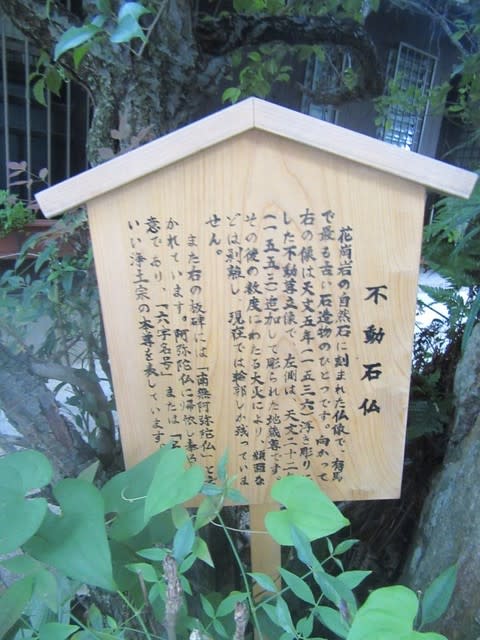 不動石仏
花崗岩の自然石に刻まれた仏像で、有馬
で最も古い石造物のひとつです。向かって
右の像は天文五年(一五三六)浮き彫り
した不動尊立像で、左側は、天文二十二
(一五五三)追加して彫られた地蔵尊です。
その後の数度にわたる大火により、顔面な
どは剥離し、現在では輪郭しか残っていま
せん。
また右の板碑には「南無阿弥陀仏」と
かれています。阿弥陀仏に帰依し奉る
意であり、「六字名号」または「名
いい浄土宗の本尊を表しています